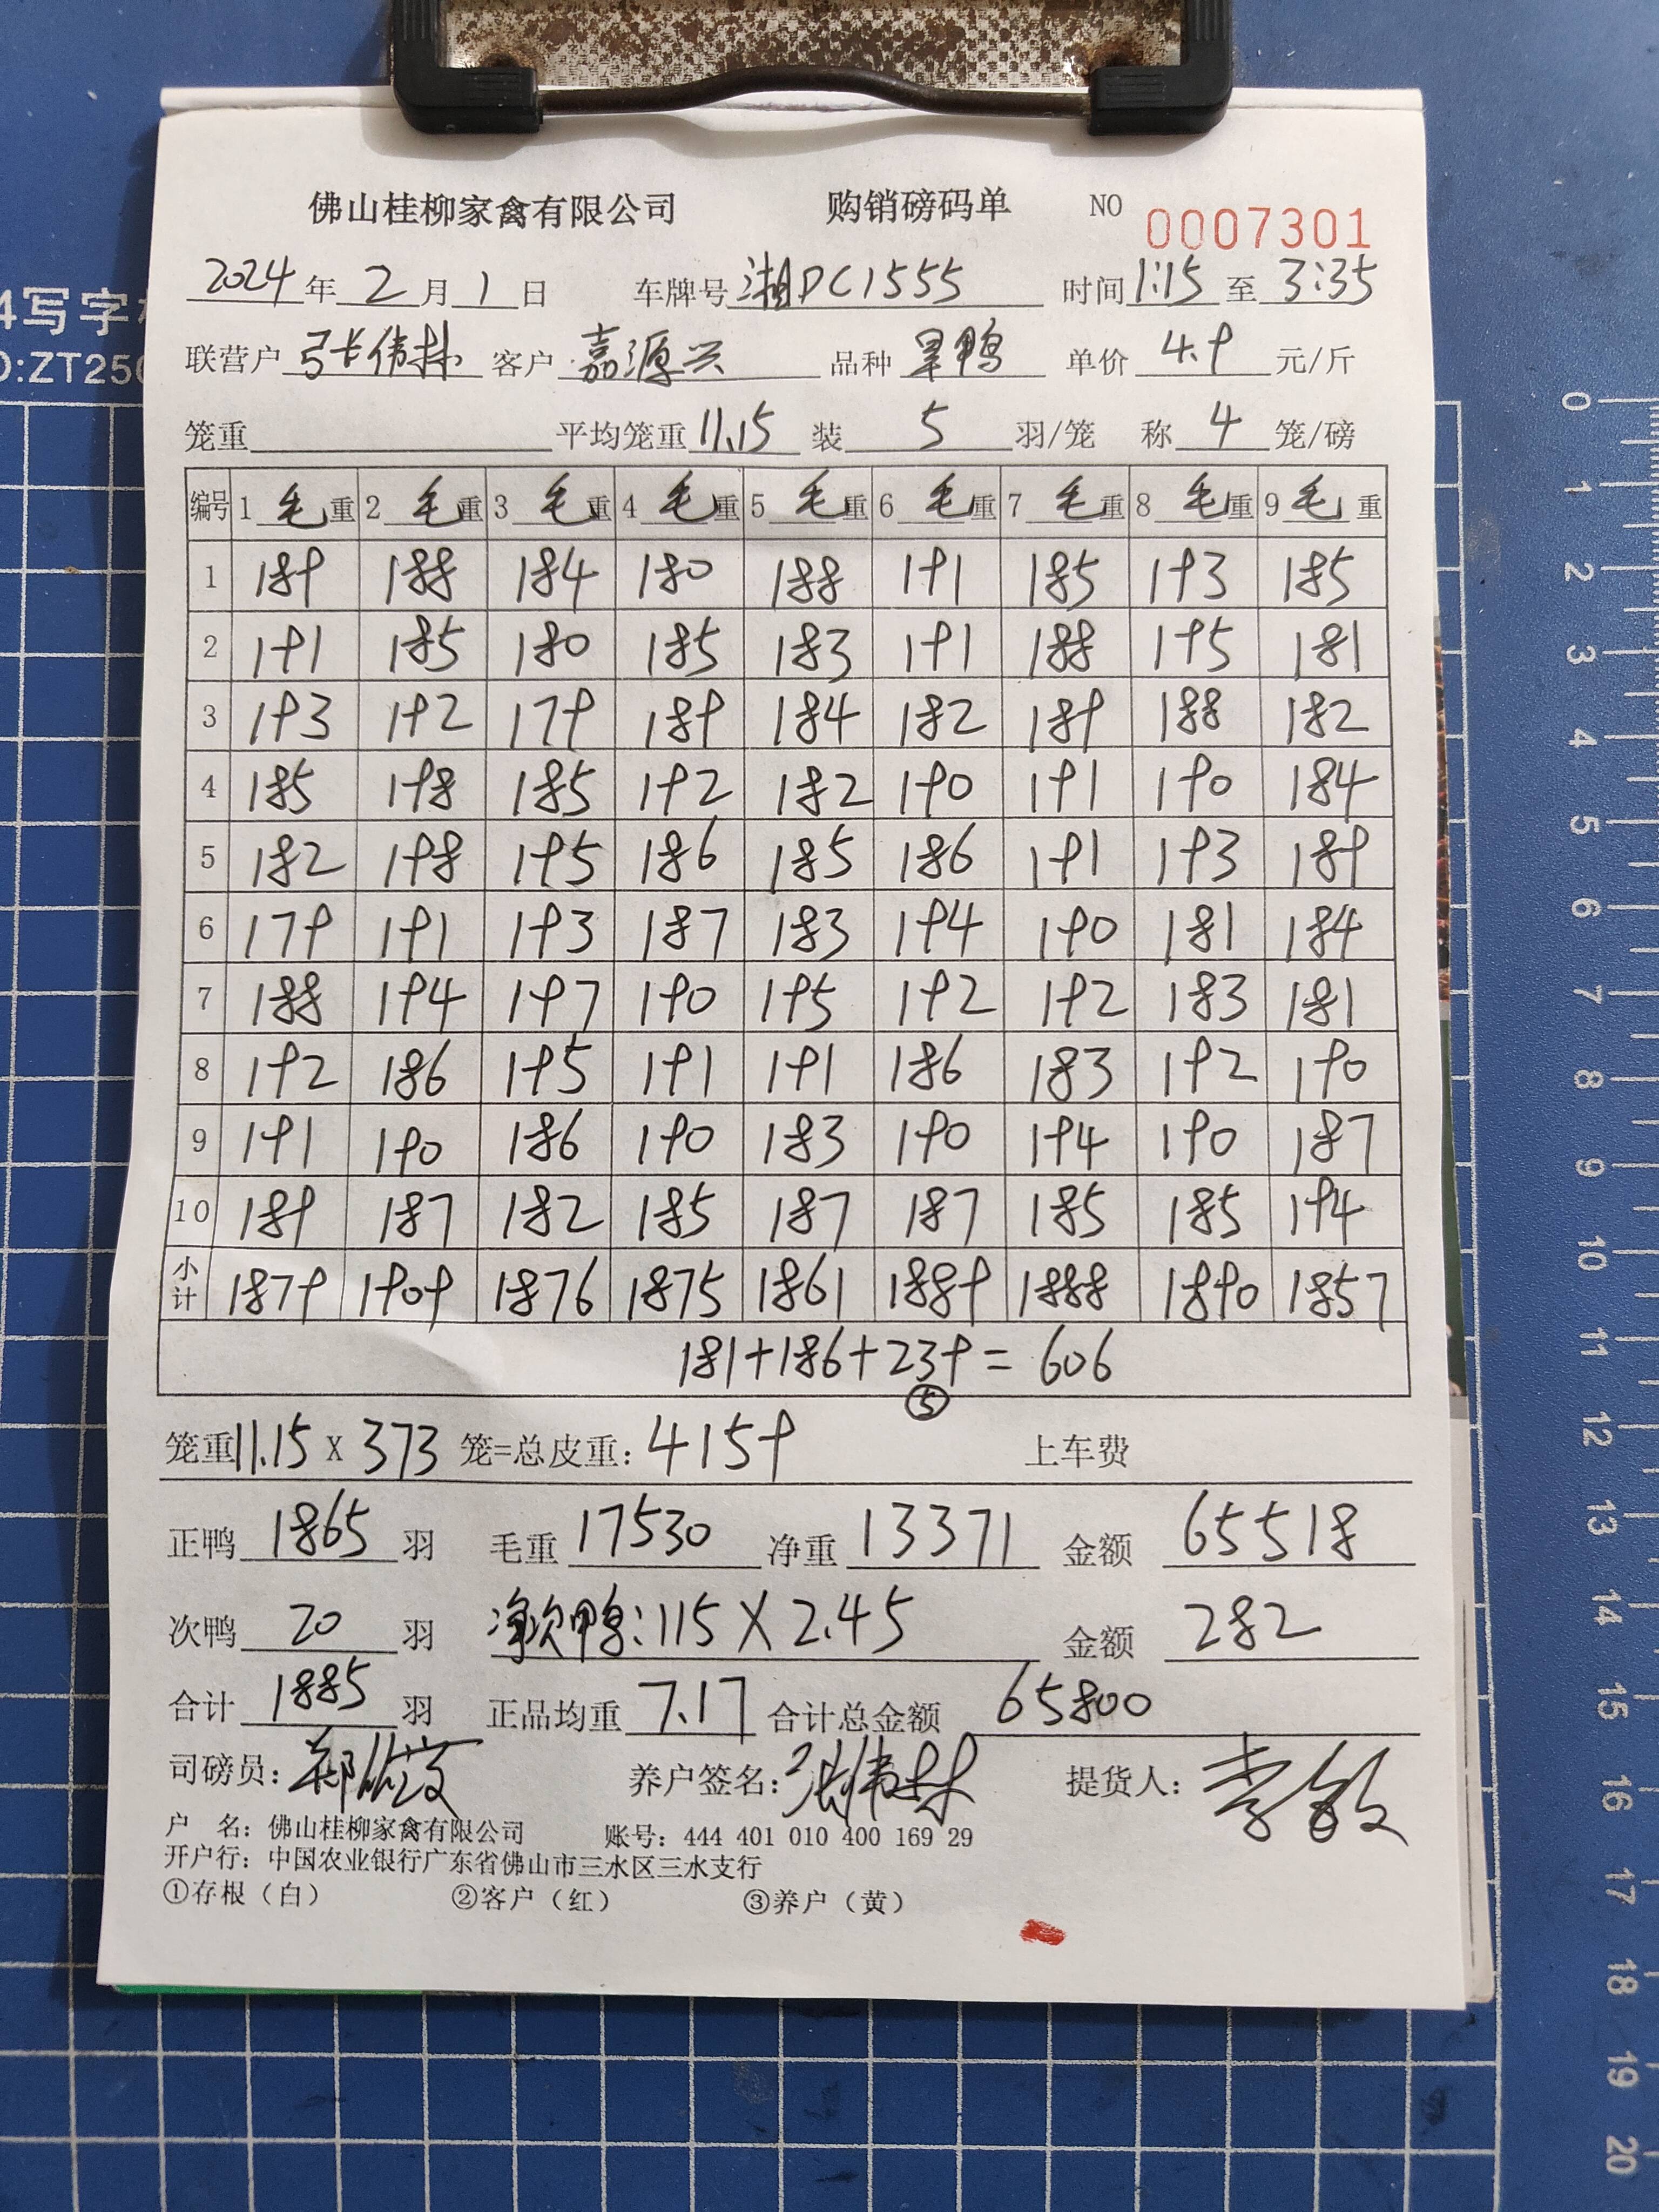 佛山桂柳家禽有限公司 购销磅码单 NO 0007301
2024年2月1日 车牌号 湘DC1555 时间 1:15 至 3:35
联营户 张伟林 客户 嘉源兴 品种 旱鸭 单价 4.9 元/斤
笼重 平均笼重 11.15 装 5 羽/笼 称 4 笼/磅
编号 1 毛重 2 毛重 3 毛重 4 毛重 5 毛重 6 毛重 7 毛重 8 毛重 9 毛重
1 189 188 184 180 188 191 185 193 185
2 191 185 180 185 183 191 188 195 181
3 193 192 179 189 184 182 189 188 182
4 185 198 185 192 182 190 191 190 184
5 182 198 195 186 185 186 191 193 189
6 179 191 193 187 183 194 190 181 184
7 188 194 197 190 195 192 192 183 181
8 192 186 195 191 191 186 183 192 190
9 191 190 186 190 183 190 194 190 187
10 189 187 182 185 187 187 185 185 194
小计 1879 1909 1876 1875 1861 1889 1888 1890 1857
181+186+239=606
⑤
笼重11.15 X 373 笼=总皮重: 4159 上车费
正鸭 1865 羽 毛重 17530 净重 13371 金额 65518
次鸭 20 羽 净次鸭:115 X 2.45 金额 282
合计 1885 羽 正品均重 7.17 合计总金额 65800
司磅员: 养户签名: 张伟林 提货人: 李敏
户 名: 佛山桂柳家禽有限公司 账号: 444 401 010 400 169 29
开户行: 中国农业银行广东省佛山市三水区三水支行
①存根（白） ②客户（红） ③养户（黄）
4写字
D:ZT250
0
1
2
3
4
5
6
7
8
9
10
11
12
13
14
15
16
17
18
19
20